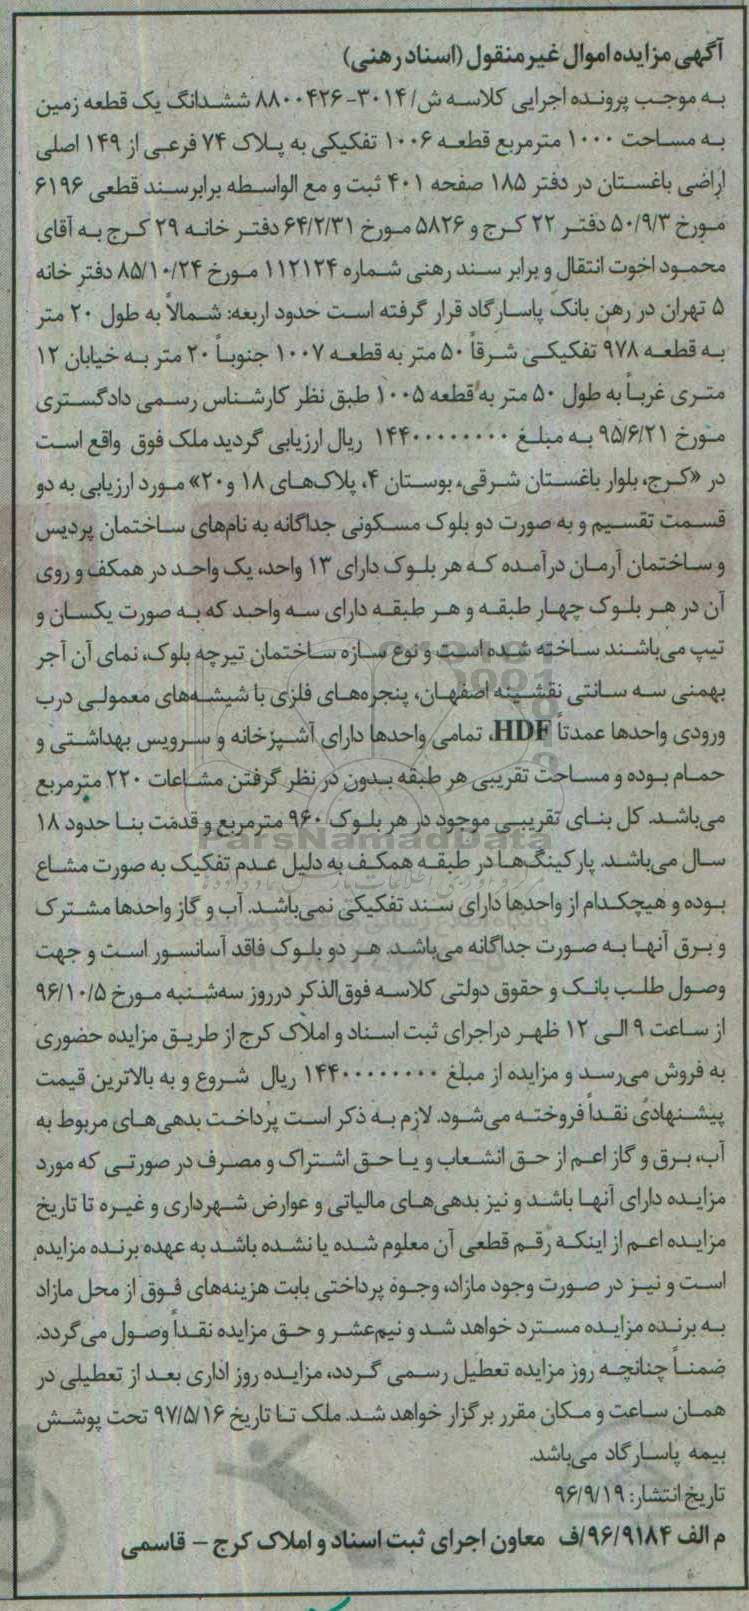 آگهی مزایده اموال غیرمنقول (اسناد رهنی)
به موجب پرونده اجرایی کلاسه ش/۳۰۱۴-۸۸۰۰۴۲۶ ششدانگ یک قطعه زمین
به مساحت ۱۰۰۰ مترمربع قطعه ۱۰۰۶ تفکیکی به پلاک ۷۴ فرعی از ۱۴۹ اصلی
اراضی باغستان در دفتر ۱۸۵ صفحه ۴۰۱ ثبت و مع الواسطه برابر سند قطعی ۶۱۹۶
مورخ ۵۰/۹/۳ دفتر ۲۲ کرج و ۵۸۲۶ مورخ ۶۴/۲/۳۱ دفتر خانه ۲۹ کرج به آقای
محمود اخوت انتقال و برابر سند رهنی شماره ۱۱۲۱۲۴ مورخ ۸۵/۱۰/۲۴ دفتر خانه
۵ تهران در رهن بانک پاسارگاد قرار گرفته است حدود اربعه: شمالاً به طول ۲۰ متر
به قطعه ۹۷۸ تفکیکی شرقاً ۵۰ متر به قطعه ۱۰۰۷ جنوباً ۲۰ متر به خیابان ۱۲
متری غرباً به طول ۵۰ متر به قطعه ۱۰۰۵ طبق نظر کارشناس رسمی دادگستری
مورخ ۹۵/۶/۲۱ به مبلغ ۱۴۴۰۰۰۰۰۰۰۰ ریال ارزیابی گردید ملک فوق واقع است
در «کرج، بلوار باغستان شرقی، بوستان ۴، پلاک‌های ۱۸ و ۲۰» مورد ارزیابی به دو
قسمت تقسیم و به صورت دو بلوک مسکونی جداگانه به نام‌های ساختمان پردیس
و ساختمان آرمان درآمده که هر بلوک دارای ۱۳ واحد، یک واحد در همکف و روی
آن در هر بلوک چهار طبقه و هر طبقه دارای سه واحد که به صورت یکسان و
تیپ می‌باشند ساخته شده است و نوع سازه ساختمان تیرچه بلوک، نمای آن آجر
بهمنی سه سانتی نقشینه اصفهان، پنجره‌های فلزی با شیشه‌های معمولی درب
ورودی واحدها عمدتاً HDF، تمامی واحدها دارای آشپزخانه و سرویس بهداشتی و
حمام بوده و مساحت تقریبی هر طبقه بدون در نظر گرفتن مشاعات ۲۲۰ مترمربع
می‌باشد. کل بنای تقریبی موجود در هر بلوک ۹۶۰ مترمربع و قدمت بنا حدود ۱۸
ParsNamadData
سال می‌باشد. پارکینگ‌ها در طبقه همکف به دلیل عدم تفکیک به صورت مشاع
بوده و هیچکدام از واحدها دارای سند تفکیکی نمی‌باشد. آب و گاز واحدها مشترک
و برق آنها به صورت جداگانه می‌باشد. هر دو بلوک فاقد آسانسور است و جهت
وصول طلب بانک و حقوق دولتی کلاسه فوق‌الذکر در روز سه‌شنبه مورخ ۹۶/۱۰/۵
از ساعت ۹ الی ۱۲ ظهر در اجرای ثبت اسناد و املاک کرج از طریق مزایده حضوری
به فروش می‌رسد و مزایده از مبلغ ۱۴۴۰۰۰۰۰۰۰۰ ریال شروع و به بالاترین قیمت
پیشنهادی نقداً فروخته می‌شود. لازم به ذکر است پرداخت بدهی‌های مربوط به
آب، برق و گاز اعم از حق انشعاب و یا حق اشتراک و مصرف در صورتی که مورد
مزایده دارای آنها باشد و نیز بدهی‌های مالیاتی و عوارض شهرداری و غیره تا تاریخ
مزایده اعم از اینکه رقم قطعی آن معلوم شده یا نشده باشد به عهده برنده مزایده
است و نیز در صورت وجود مازاد، وجوه پرداختی بابت هزینه‌های فوق از محل مازاد
به برنده مزایده مسترد خواهد شد و نیم‌عشر و حق مزایده نقداً وصول می‌گردد.
ضمناً چنانچه روز مزایده تعطیل رسمی گردد، مزایده روز اداری بعد از تعطیلی در
همان ساعت و مکان مقرر برگزار خواهد شد. ملک تا تاریخ ۹۷/۵/۱۶ تحت پوشش
بیمه پاسارگاد می‌باشد.
تاریخ انتشار: ۹۶/۹/۱۹
م الف ۹۶/۹۱۸۴/ف معاون اجرای ثبت اسناد و املاک کرج – قاسمی